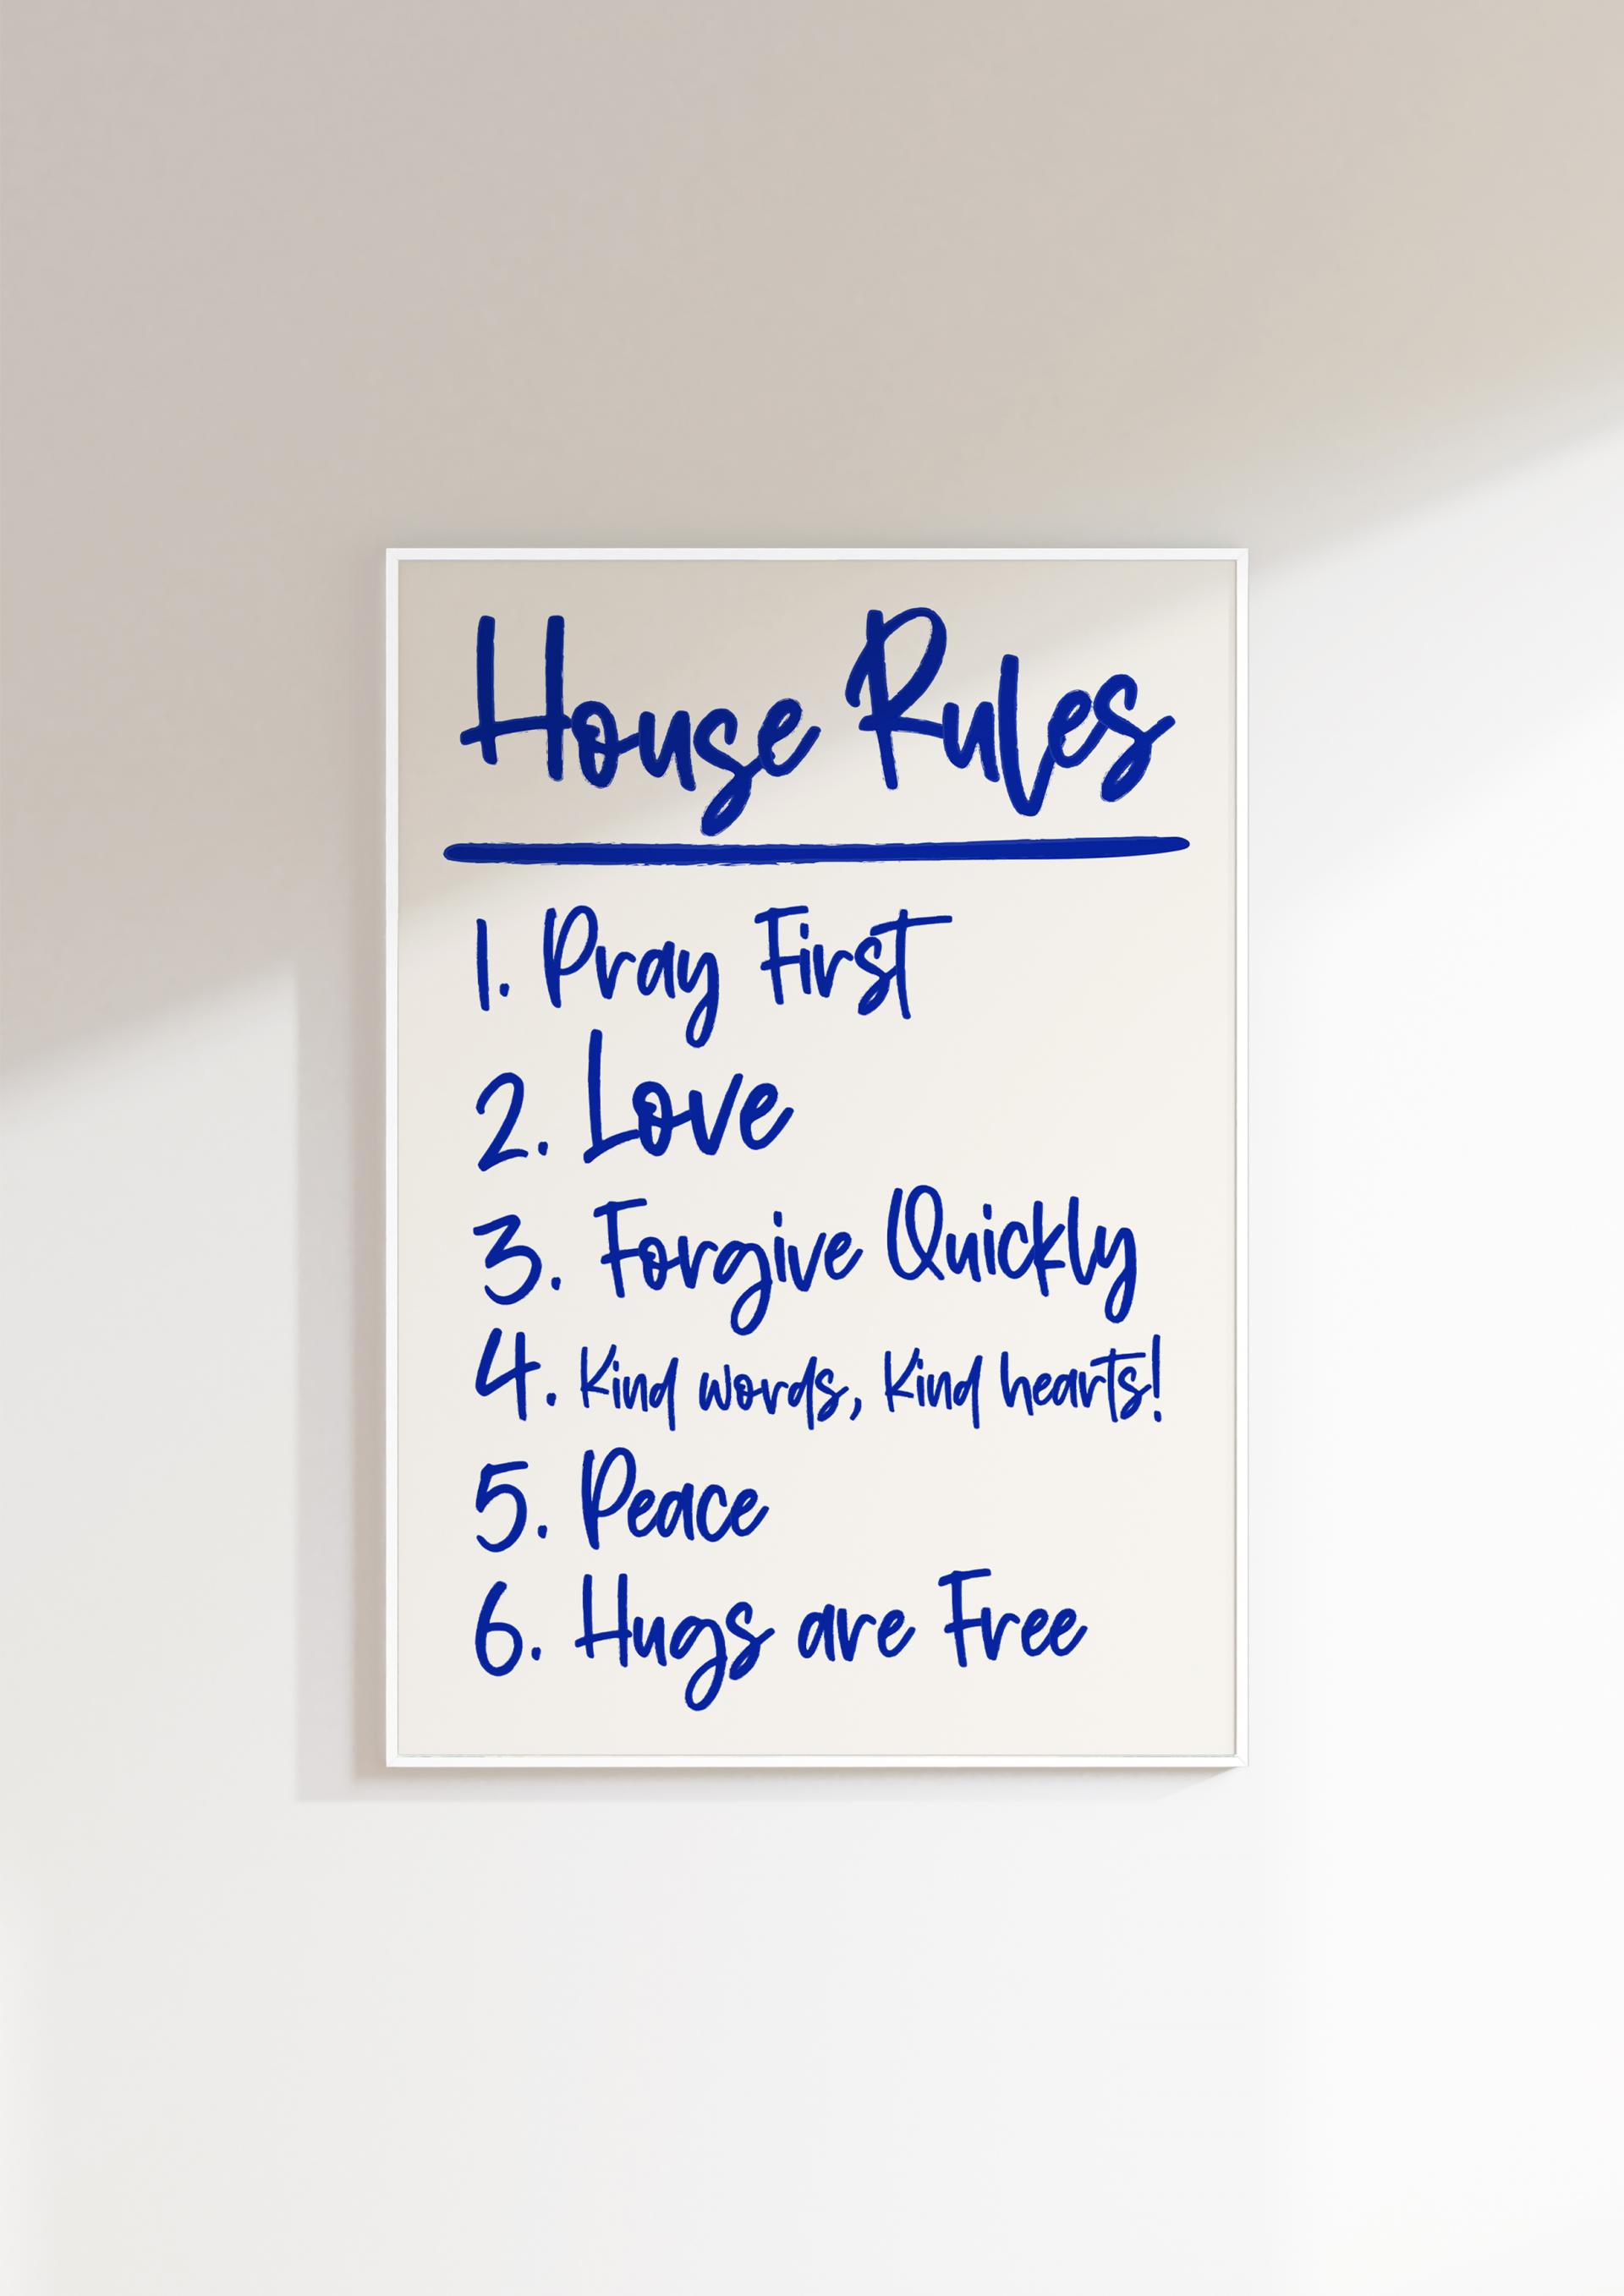 House Rules
1. Pray First
2. Love
3. Forgive Quickly
4. Kind words, Kind hearts!
5. Peace
6. Hugs are Free